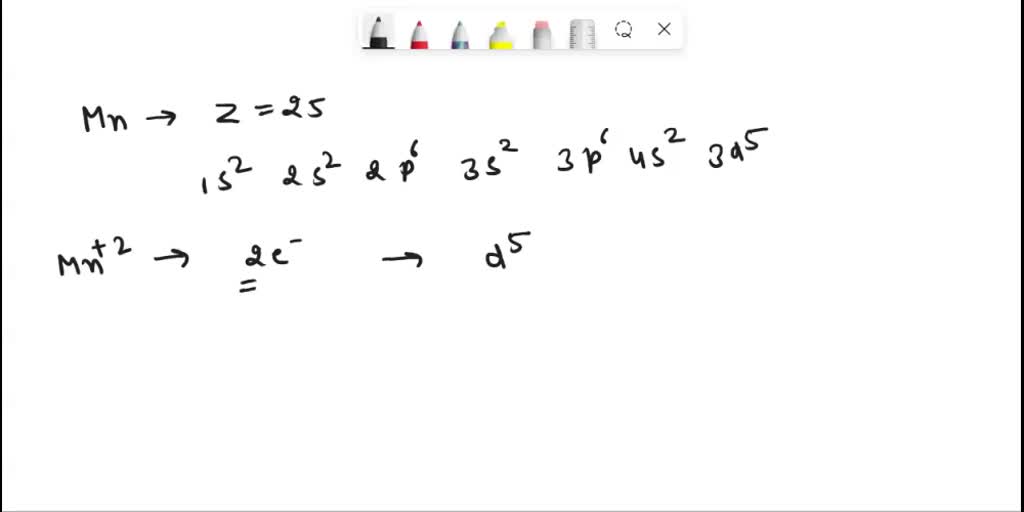 Mn → Z = 25
1s² 2s² 2p⁶ 3s² 3p⁶ 4s² 3d⁵
Mn⁺² → 2e⁻ → d⁵